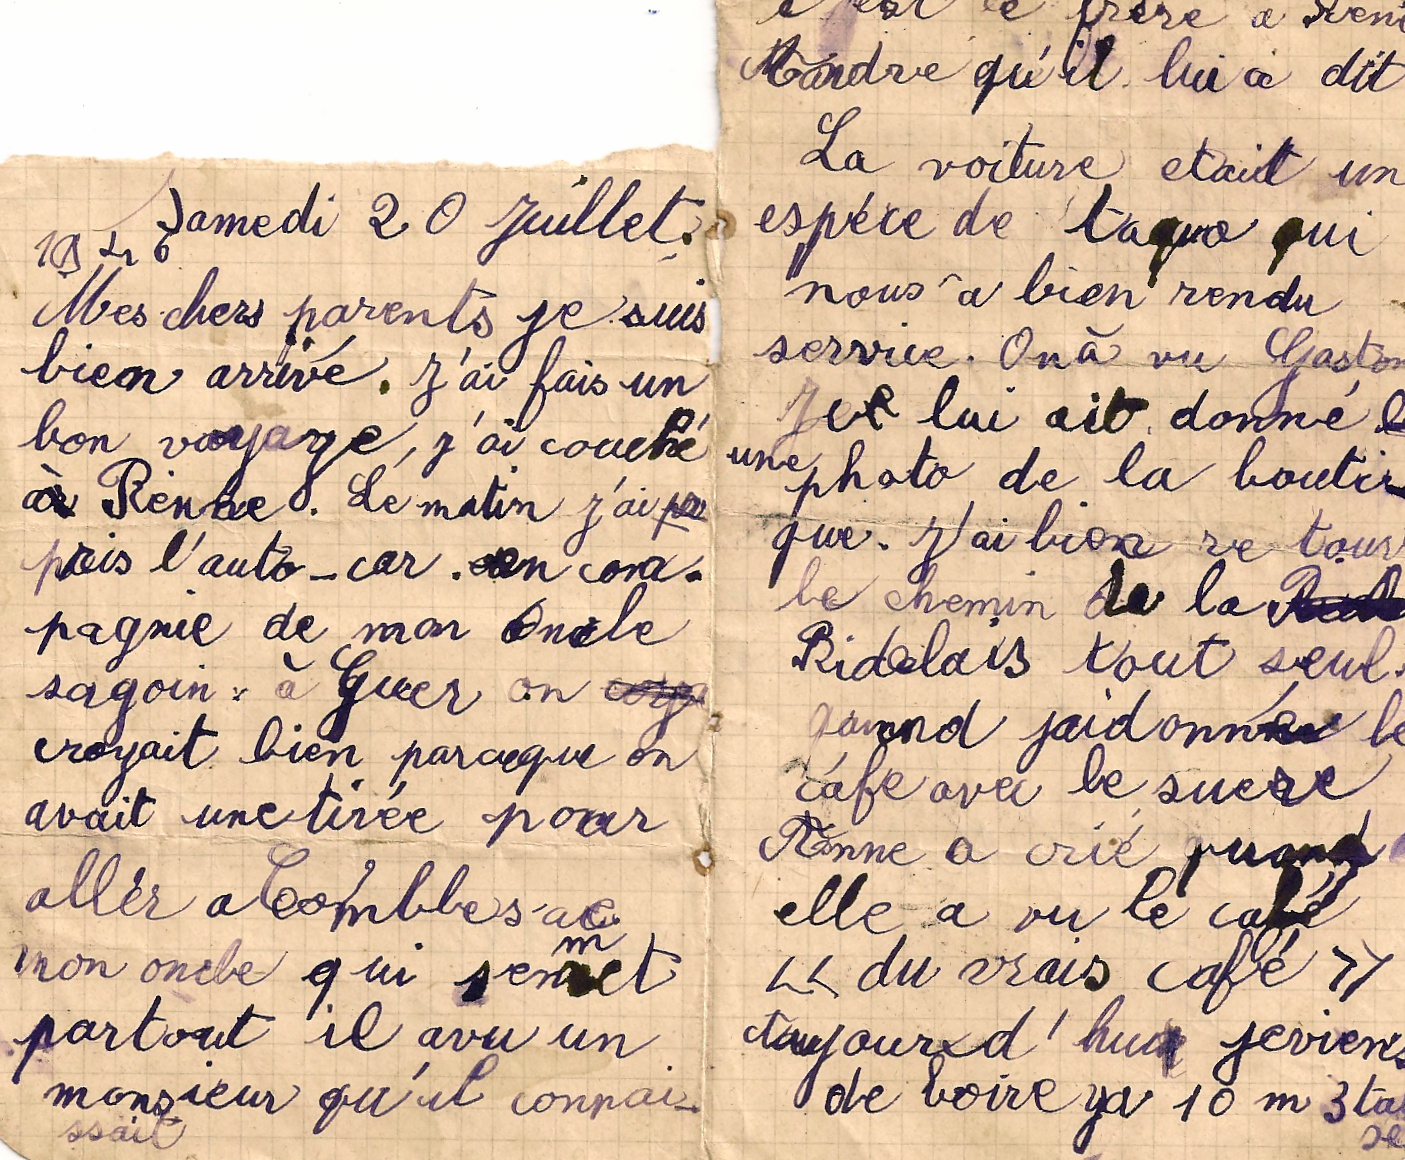 Samedi 20 Juillet.
1946
Mes chers parents je suis
bien arrivé. J'ai fais un
bon voyage, j'ai couché
à Renne. Le matin j'ai
pris l'auto-car. en com-
pagnie de mon Oncle
sagoin: à Guer on
croyait bien paraque on
avait une tirée pour
allér a Comblesac
mon oncle qui sen met
partout il a vu un
monsieur qu'il connai-
ssait
c'est le frère a
qu'il lui a dit
La voiture etait un
espéce de taquo qui
nous a bien rendu
service. On à vu Gaston
Je lui ait donné
une photo de la bouti
que. J'ai bien re
le chemin de la
Ridelais tout seul.
quand jai donné le
café avec le sucre
Anne a crié quand
elle a vu le café
<< du vrais café >>
aujourd'hui je viens
de boire ya 10 m 3